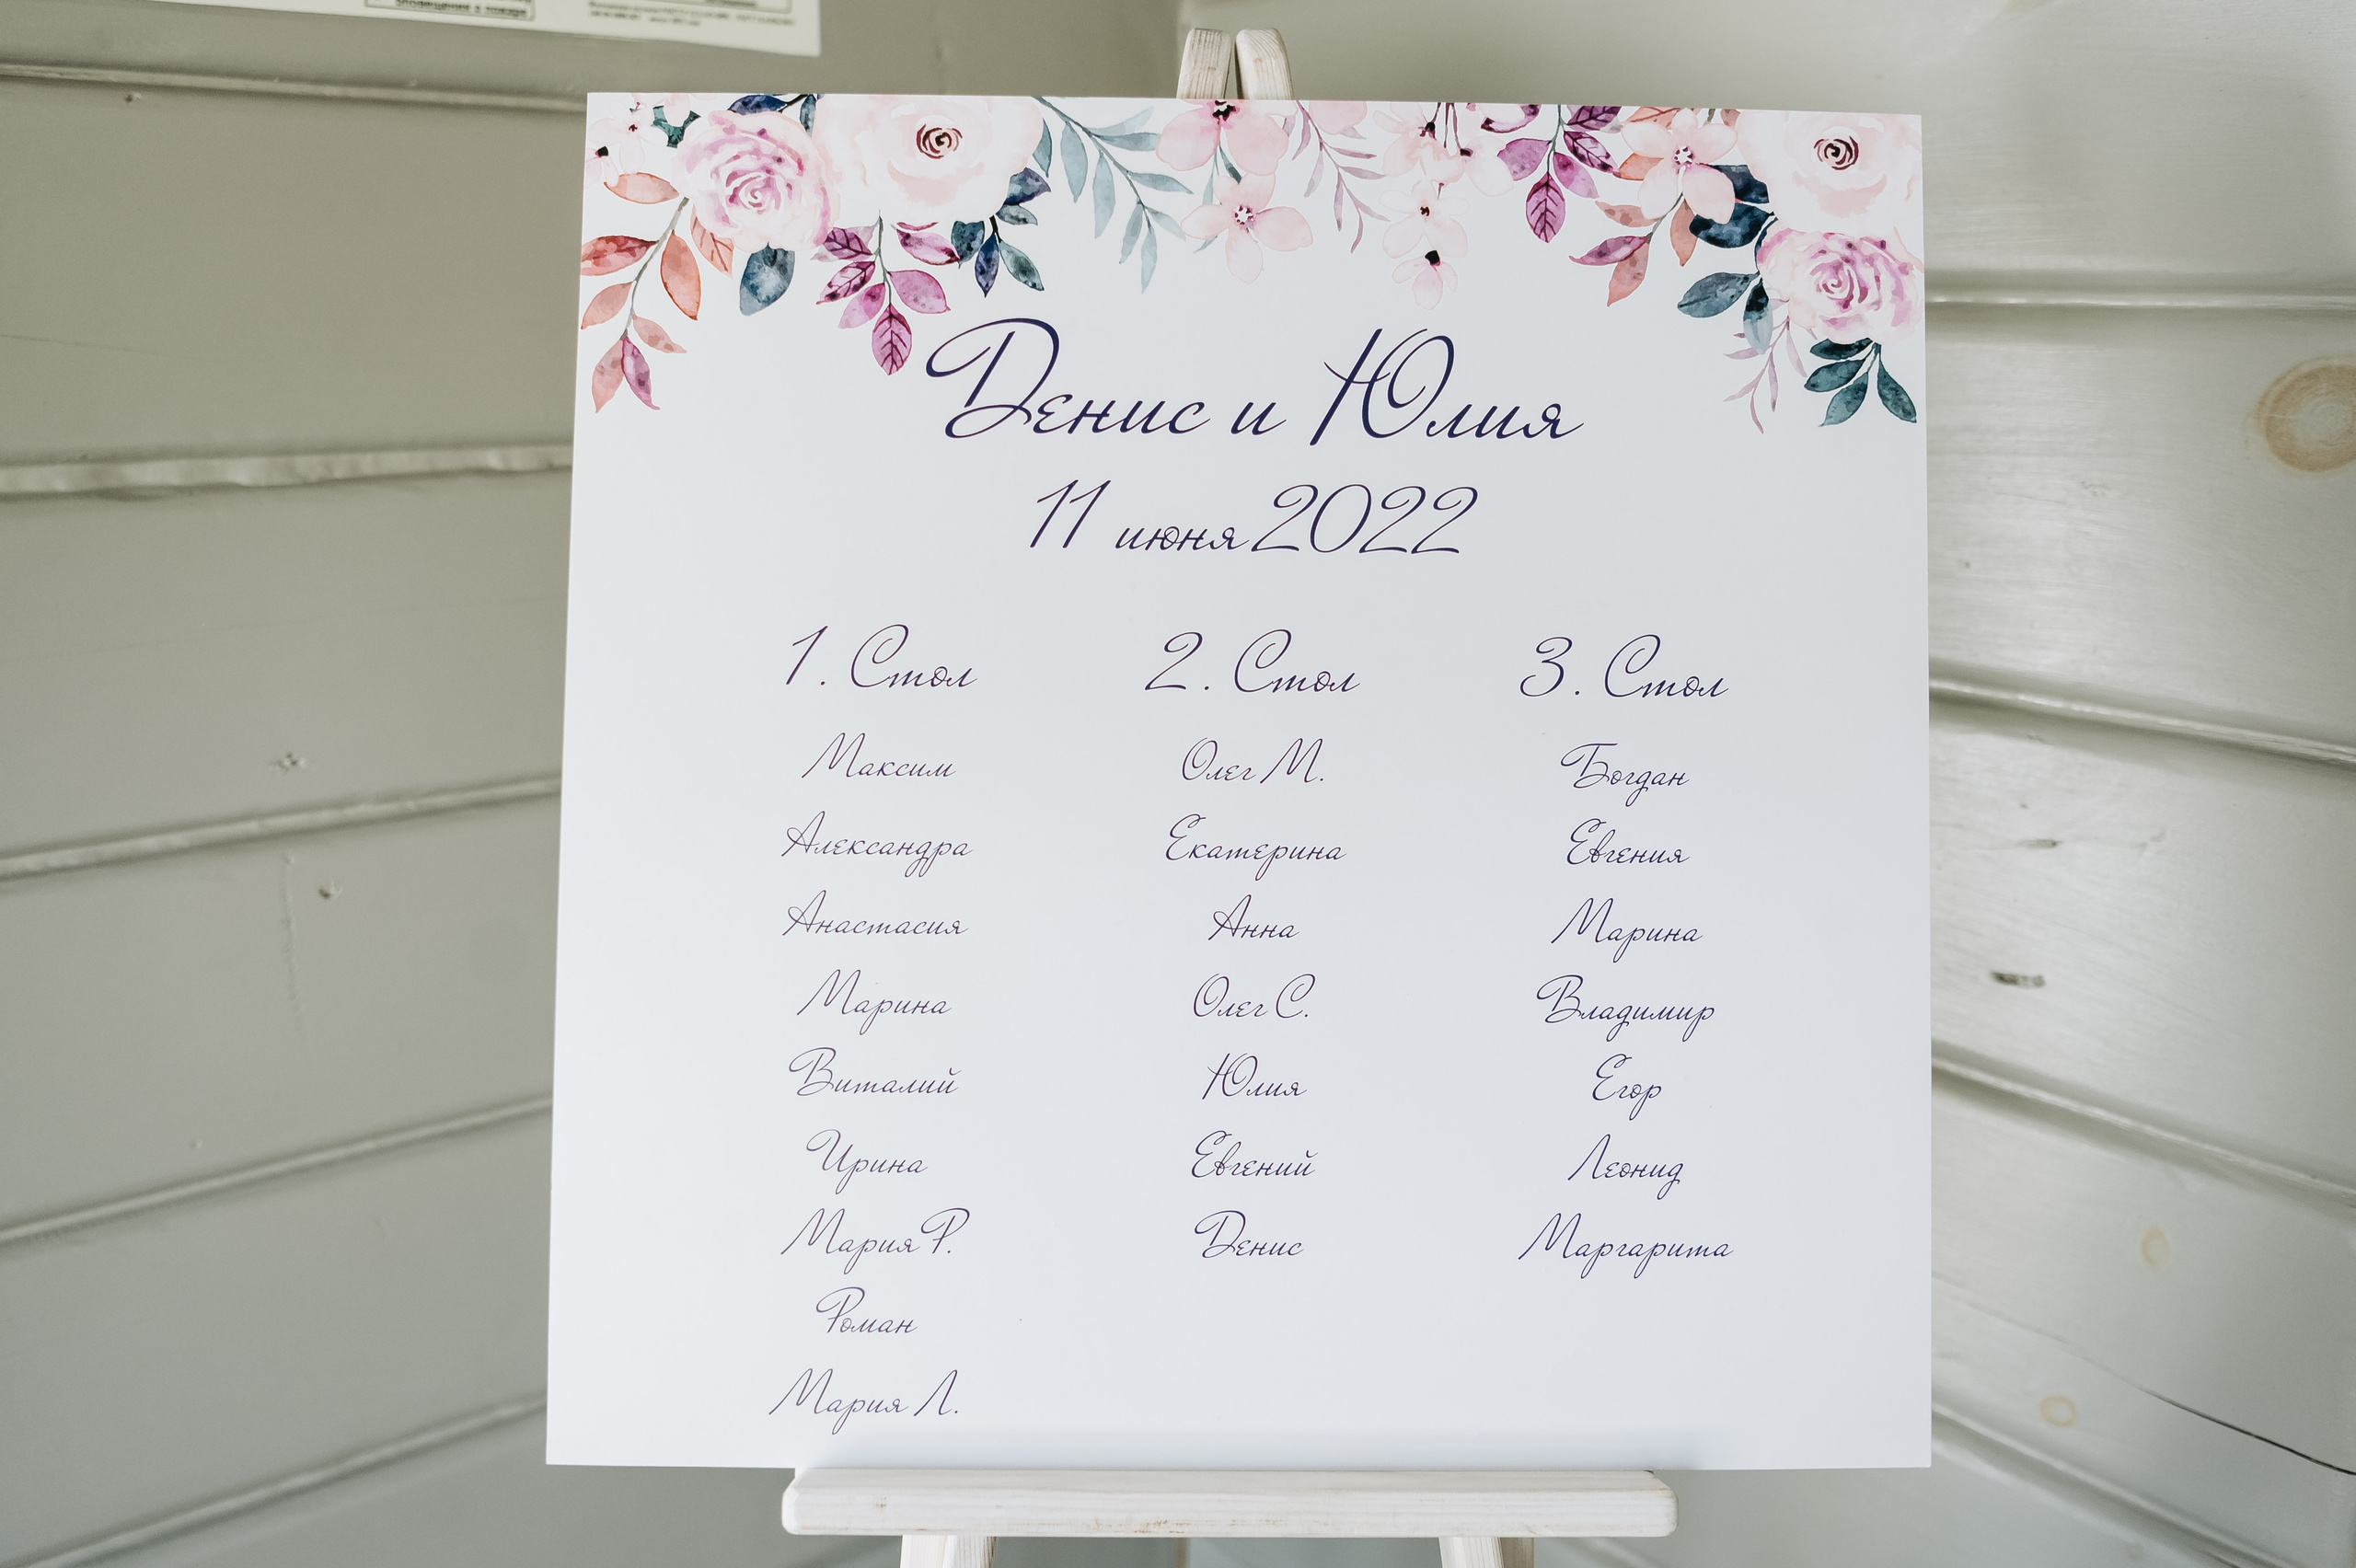 Денис и Юлия
11 июня 2022
1. Стол
Максим
Александра
Анастасия
Марина
Виталий
Ирина
Мария Р.
Роман
Мария Л.
2. Стол
Олег М.
Екатерина
Анна
Олег С.
Юлия
Евгений
Денис
3. Стол
Богдан
Евгения
Марина
Владимир
Егор
Леонид
Маргарита